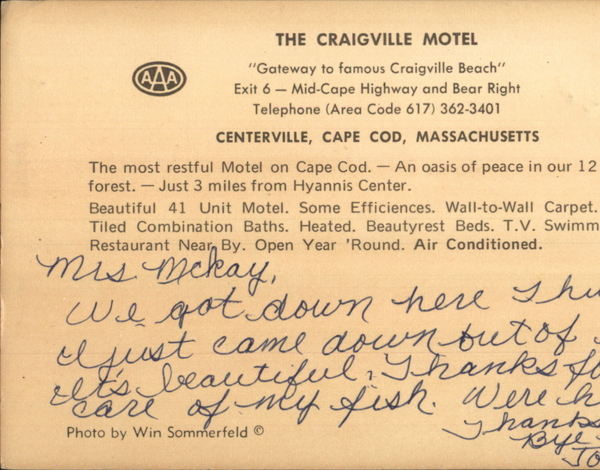 THE CRAIGVILLE MOTEL
AAA
"Gateway to famous Craigville Beach"
Exit 6 — Mid-Cape Highway and Bear Right
Telephone (Area Code 617) 362-3401
CENTERVILLE, CAPE COD, MASSACHUSETTS
The most restful Motel on Cape Cod. — An oasis of peace in our 12
forest. — Just 3 miles from Hyannis Center.
Beautiful 41 Unit Motel. Some Efficiences. Wall-to-Wall Carpet.
Tiled Combination Baths. Heated. Beautyrest Beds. T.V. Swimm
Restaurant Near By. Open Year 'Round. Air Conditioned.
Mrs. Mckay,
We got down here Thu
I just came down out of
It's beautiful. Thanks fo
care of my fish. Were h
Thanks
Bye
Jo
Photo by Win Sommerfeld ©